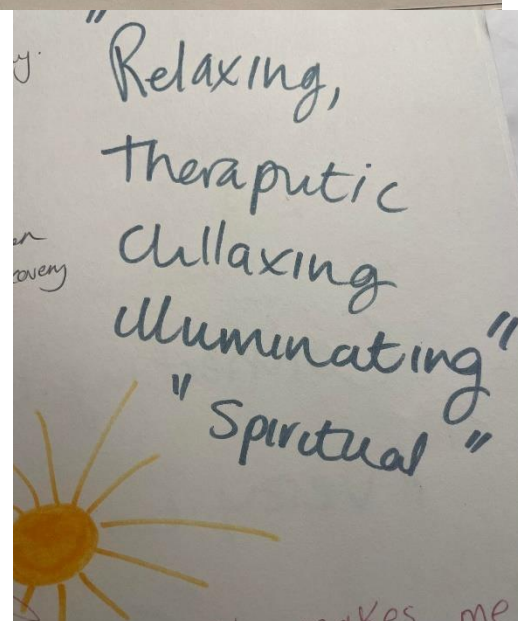 y.
"Relaxing,
Theraputic
Chillaxing
illuminating"
"Spiritual"
en
covery
makes me